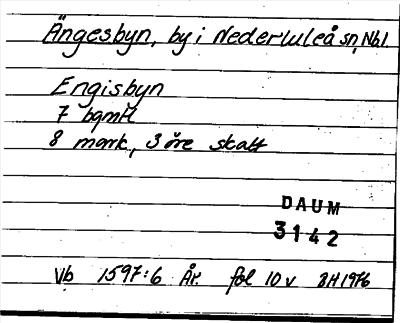 Ängesbyn, by i Nederluleå sn, Nbl.
Engisbyn
7 bgmR
8 mark, 3 öre skatt
DAUM
3142
Vb 1597:6 År. fol 10 v BH 1976